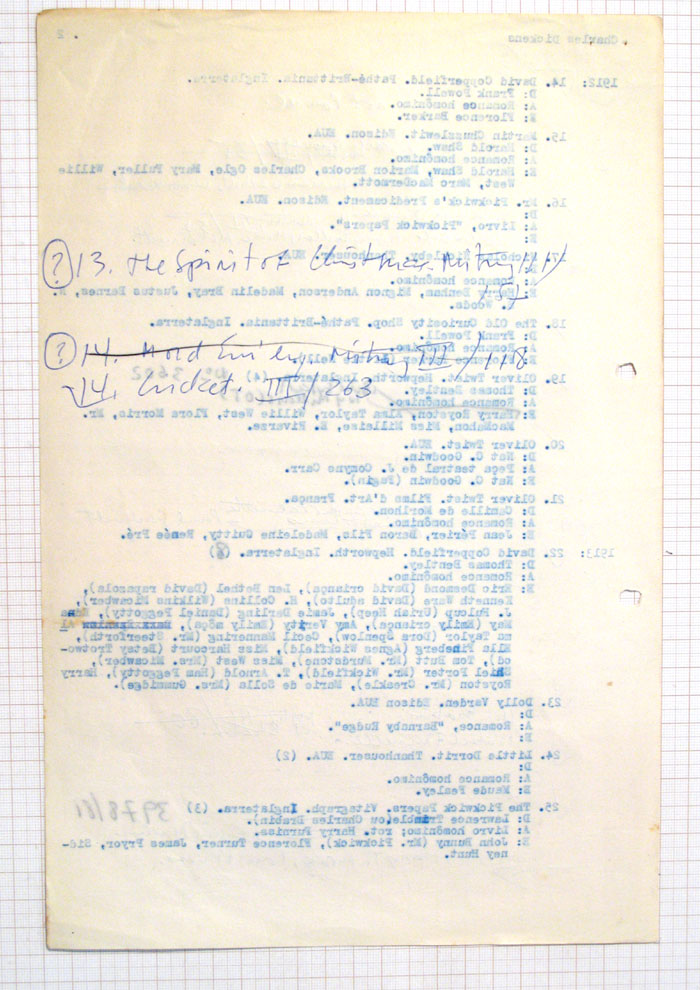 Charles Dickens . 2
1912: 14. David Copperfield. Pathé-Brittania. Inglaterra.
D: Frank Powell.
A: Romance homônimo.
E: Florence Barker.
15. Martin Chuzzlewit. Edison. EUA.
D: Harold Shaw.
A: Romance homônimo.
E: Harold Shaw, Marion Brooks, Charles Ogle, Mary Fuller, Willie
West, Marc MacDermott.
16. Mr. Pickwick's Predicament. Edison. EUA.
D:
A: Livro, "Pickwick Papers".
E:
? 13. The Spirit of Christmas. Mitry
Nicholas Nickleby. Thanhouser. EUA.
A: Romance homônimo.
E: Harry Benham, Mignon Anderson, Madelin Bray, Justus Barnes, N.
Woods.
18. The Old Curiosity Shop. Pathé-Brittania. Inglaterra.
D: Frank Powell.
A: Romance homônimo.
? 14. Mitry III/118
14. Cricket. III/263
19. Oliver Twist. Hepworth. Inglaterra. (4)
D: Thomas Bentley.
A: Romance homônimo.
E: Harry Royston, Alma Taylor, Willie West, Flora Morris, Mr.
MacMahon, Miss Milleise, E. Rivarse.
20. Oliver Twist. EUA.
D: Nat C. Goodwin.
A: Peça teatral de J. Comyns Carr.
E: Nat C. Goodwin (Fagin).
21. Oliver Twist. Films d'Art. França.
D: Camille de Morlhon.
A: Romance homônimo.
E: Jean Périer, Baron Fils, Madeleine Guitty, Renée Pré.
1913: 22. David Copperfield. Hepworth. Inglaterra.
D: Thomas Bentley.
A: Romance homônimo.
E: Eric Desmond (David criança), Len Bethel (David rapazola),
Kenneth Ware (David adulto), H. Collins (Wilkins Micawber),
J. Hulcup (Uriah Heep), Jamie Darling (Daniel Peggotty), Edna
May (Emily criança), Amy Verity (Emily môça), Al
ma Taylor (Dora Spenlow), Cecil Mannering (Mr. Steerforth),
Ella Fineberg (Agnes Wickfield), Miss Harcourt (Betsy Trotwo-
od), Tom Butt (Mr. Murdstone), Miss West (Mrs. Micawber),
Shiel Porter (Mr. Wickfield), T. Arnold (Ham Peggotty), Harry
Royston (Mr. Creakle), Marie de Solla (Mrs. Gummidge).
23. Dolly Varden. Edison EUA.
D:
A: Romance, "Barnaby Rudge".
E:
24. Little Dorrit. Thanhouser. EUA. (2)
D:
A: Romance homônimo.
E: Maude Fealey.
25. The Pickwick Papers. Vitagraph. Inglaterra. (3)
D: Lawrence Trimble(ou Charles Brabin).
A: Livro homônimo; rot. Harry Furniss.
E: John Bunny (Mr. Pickwick), Florence Turner, James Pryor, Sid-
ney Hunt.
3978/61